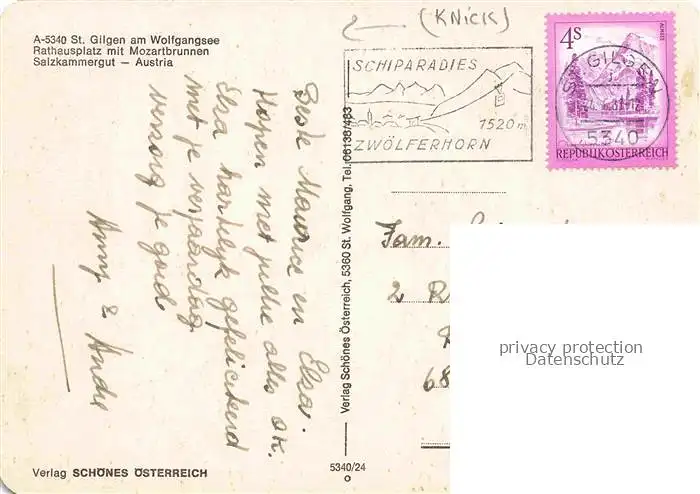 (KNick)
A-5340 St. Gilgen am Wolfgangsee
Rathausplatz mit Mozartbrunnen
Salzkammergut – Austria
SCHIPARADIES
1520 m
ZWÖLFERHORN
4S
ALMSEE
REPUBLIK ÖSTERREICH
ST. GILGEN
5340
Beste Maurice en Elsa.
Hopen met jullie alles ok.
Elsa hartelijk gefeliciteerd
met je verjaardag
verzorg je goed
Anny & André
Verlag Schönes Österreich, 5360 St. Wolfgang, Tel. 06138/483
Fam.
2 R
68
privacy protection
Datenschutz
Verlag SCHÖNES ÖSTERREICH
5340/24